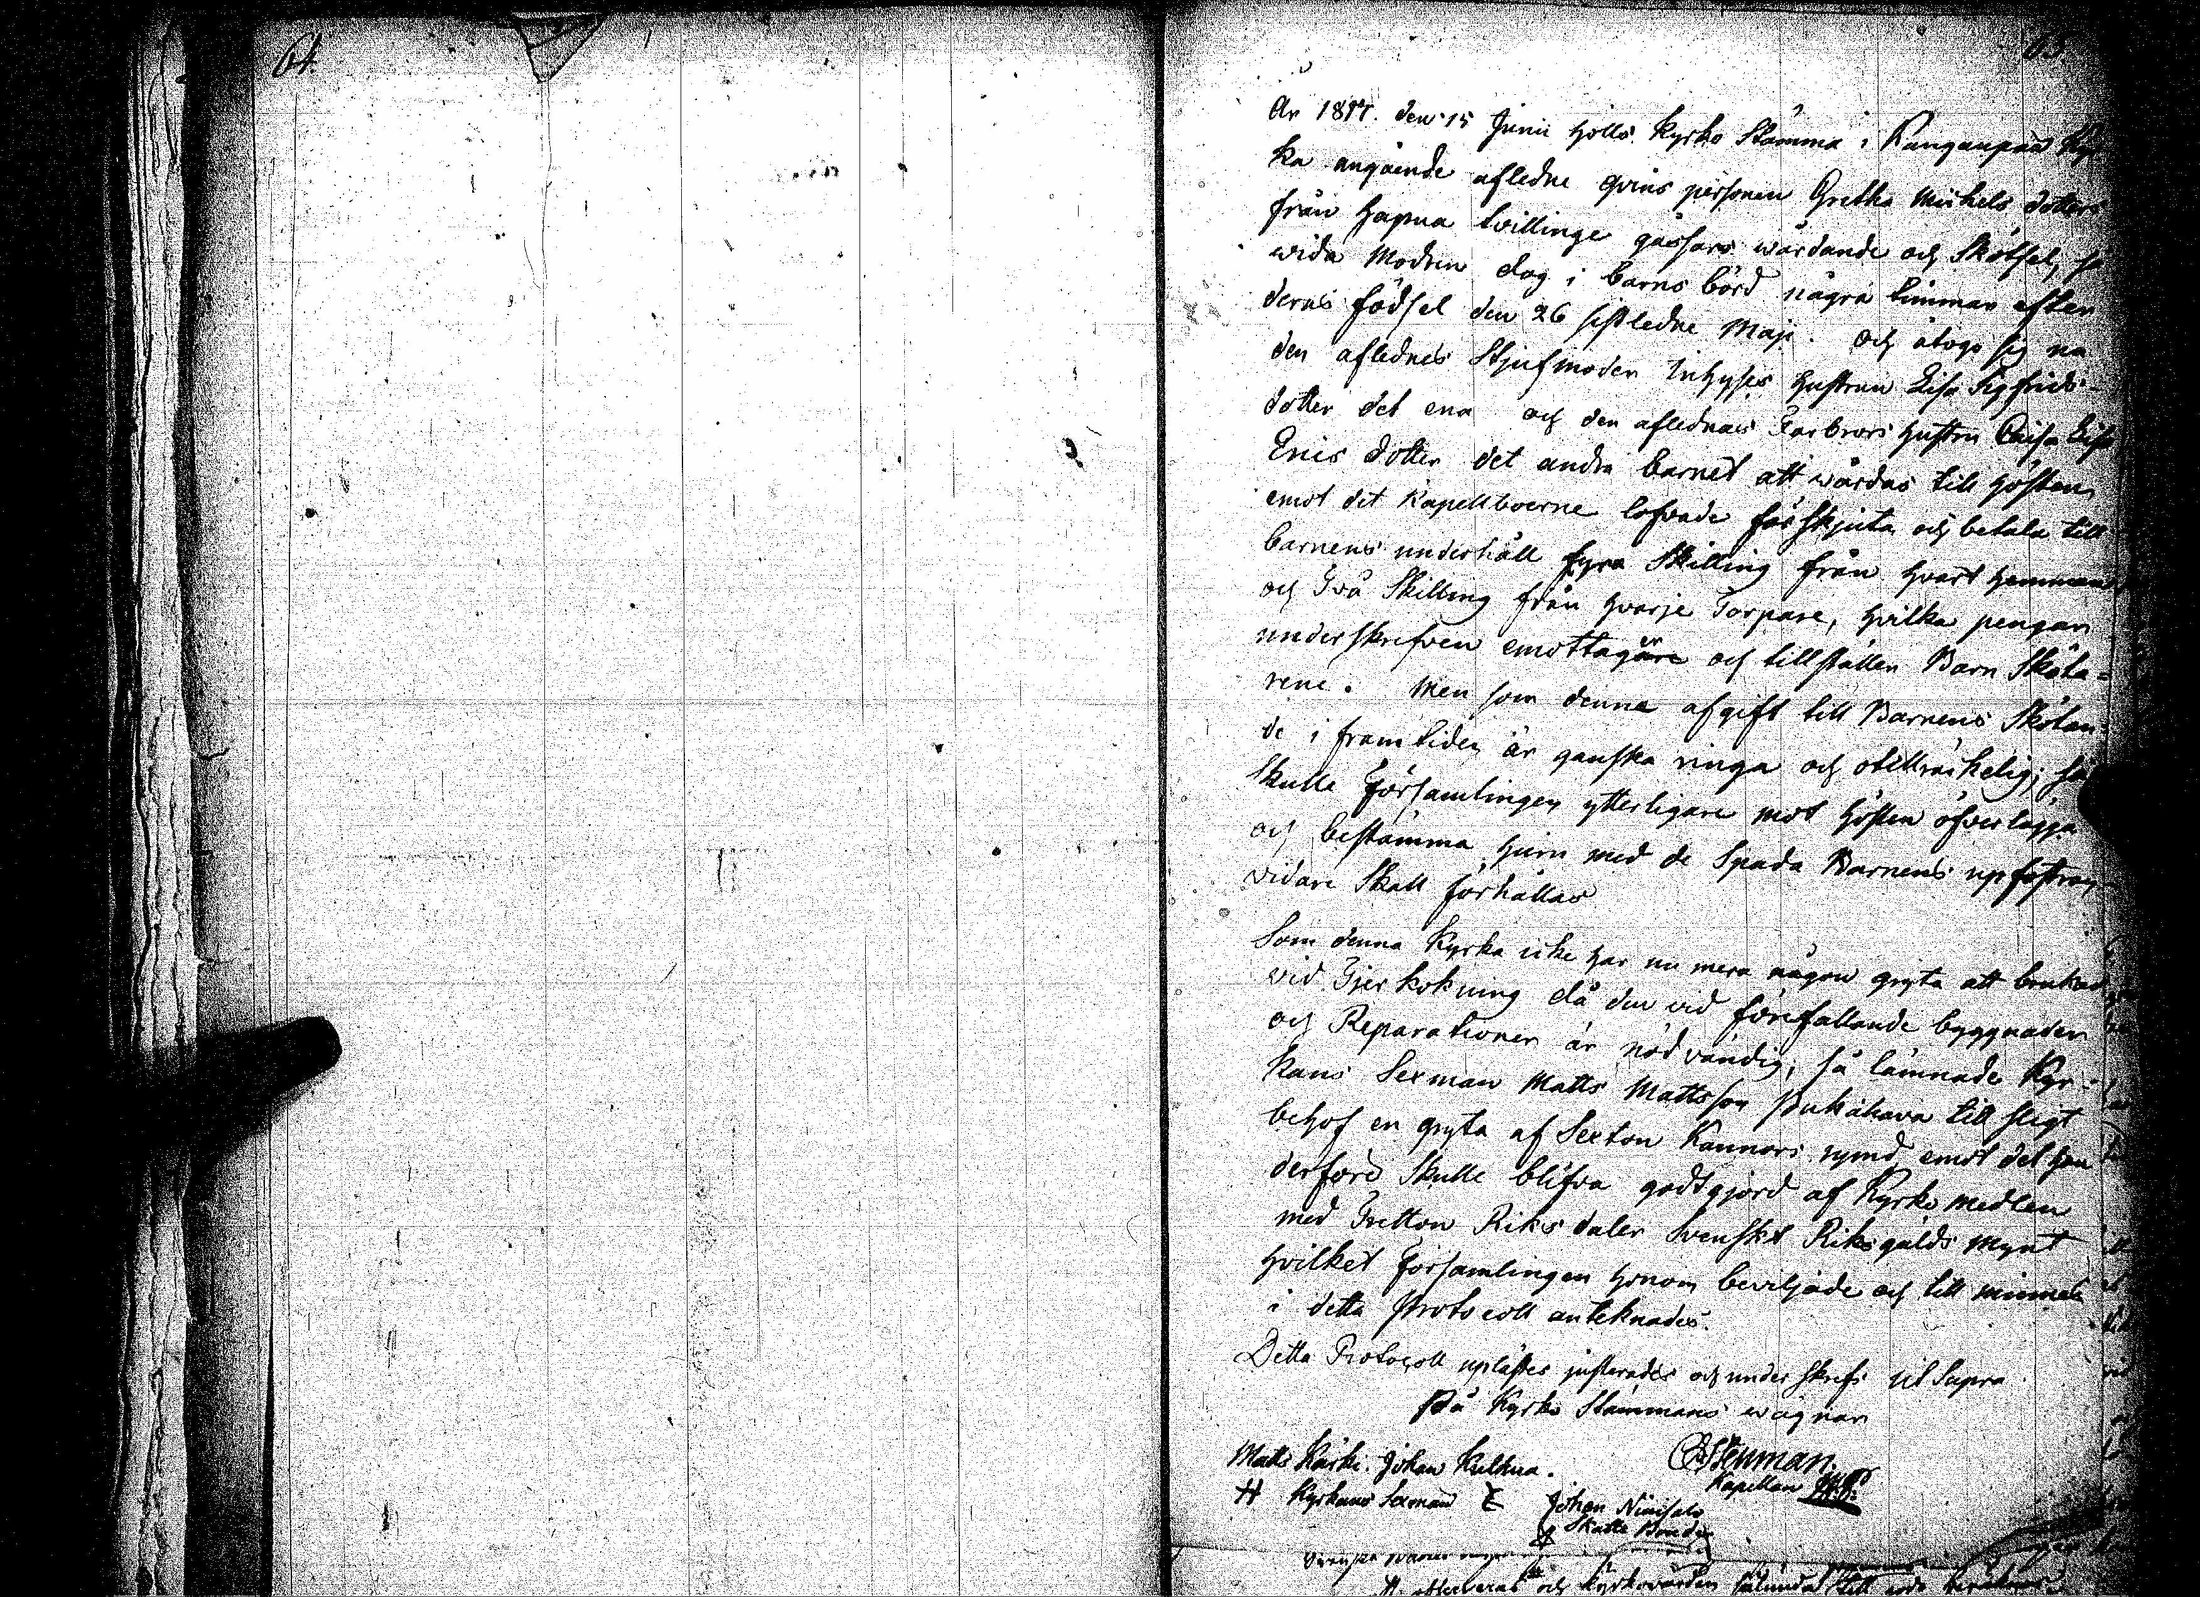 64.
63.
År 18 den 15 Junii hölls Kyrko Stämma i Kanganpää Kyr
ka angående afledne qvins personen Gretha Mickels dotters
från Hapua tvillinge gåssars wårdande och Skötsel, så
wida Modren dog i barns börd några timmar efter
deras födsel den 26 sistledne Maji. och åtogo sig nu
den aflednes Stjufmoder Inhyses Hustrun Lisa Sigfrids-
dotter det ena och den aflednas Farbrors hustru Caisa Lisa
Erics dotter det andra barnet att wårdas till hösten
emot det Kapellboerne lofvade förskjuta och betala till
barnens underhåll fyra Skilling från hvart hemman
och Två Skilling från hvarje Torpare, hvilka pengar
underskrefven emottager och tillställer Barn Sköta=
rene. Men som denna afgift till Barnens Skötan=
de i framtiden är ganska ringa och otillräckelig; så
Skulle Församlingen ytterligare mot hösten öfverlägga
och bestämma, huru med de Spada Barnens upfostran
vidare Skall förhållas
Som denna Kyrka icke har nu mera någon gryta att brukas
vid Tjerkokning då den vid förefallande byggnader
och Reparationer är nödvändig; så lämnade Kyr=
kans Sexman Matts Mattsson Pukahava till sligt
behof en gryta af Sexton Kannors rymd emot det han
derföre Skulle blifva godtgjord af Kyrko medlen
med Tretton Riksdaler Svenskt Riksgälds Mynt
hvilket Församlingen honom beviljade och till minnes
i detta Protocoll anteknades.
Detta Protocoll uplästes justerades och under skrefs ut Supra.
På Kyrko Stämmans wägnar
Stenman.
Kapellan
Matts Kärki. Johan Kulkua.
Kyrkans Sexman
Johan Niinisalo
Skatte Bonde
och Kyrkovärden